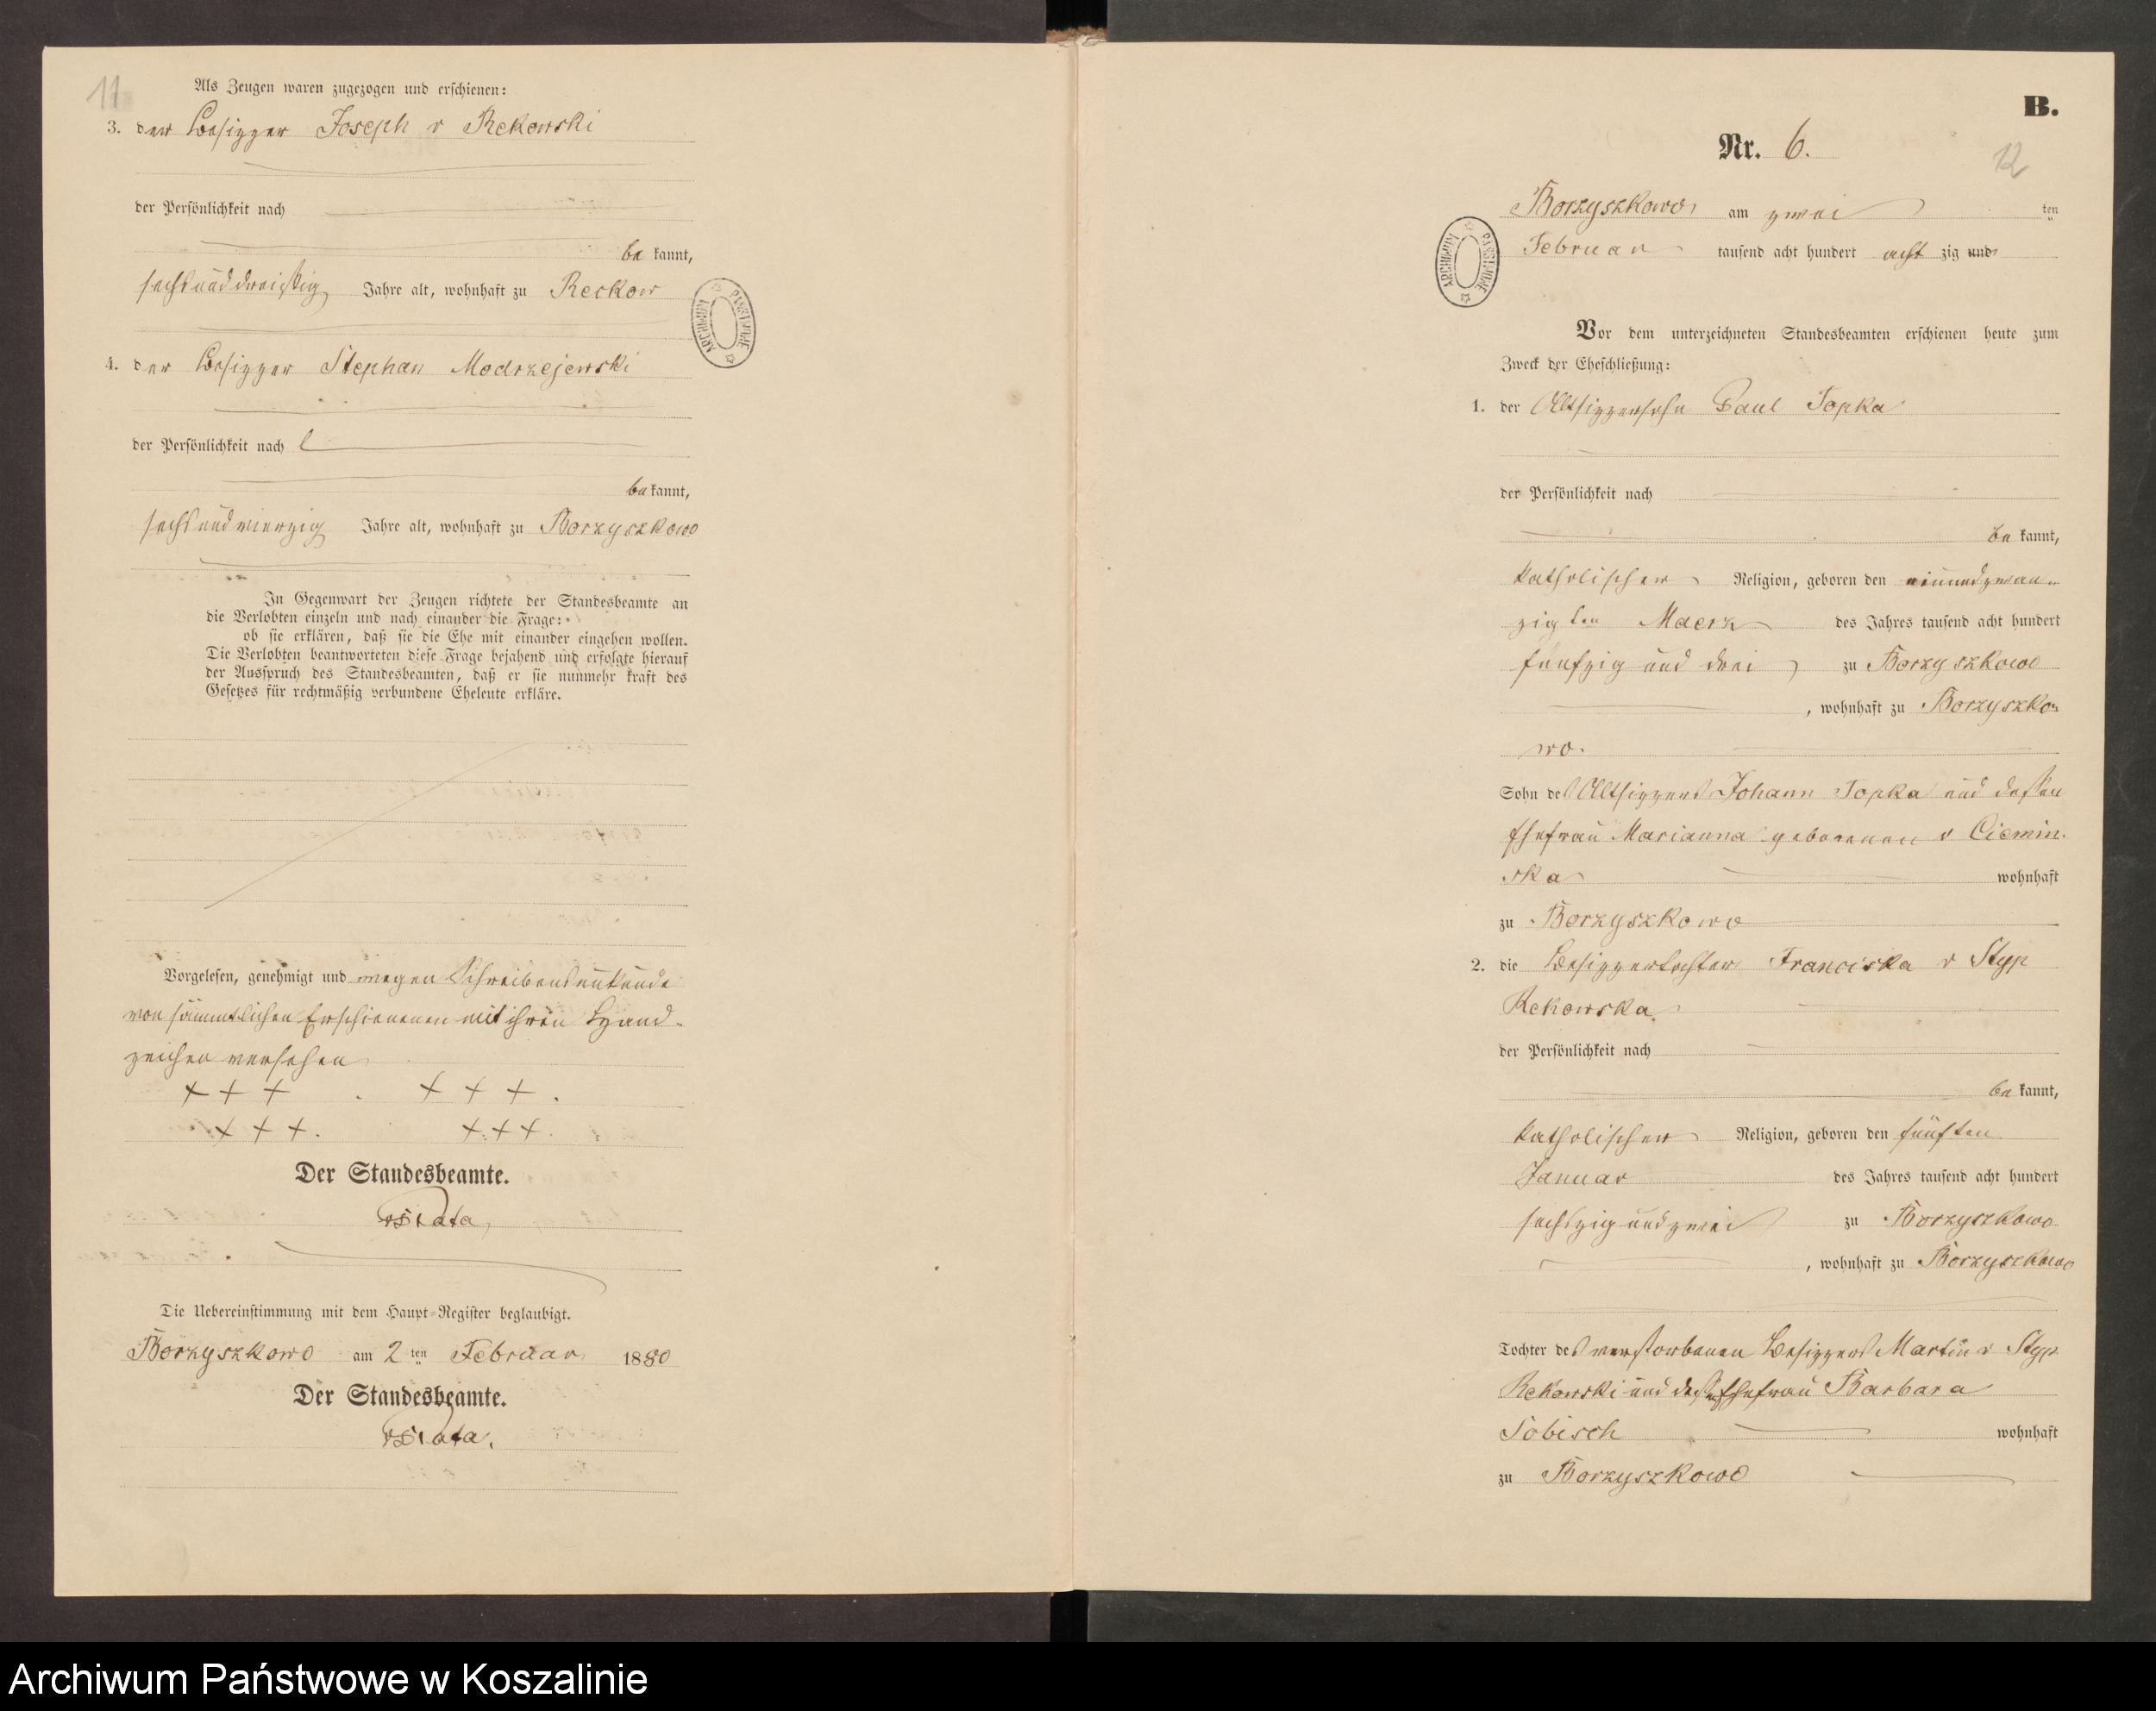 11
Als Zeugen waren zugezogen und erschienen:
3. der Besitzer Joseph v Rekowski
der Persönlichkeit nach
be kannt,
sechsunddreißig Jahre alt, wohnhaft zu Reckow
4. der Besitzer Stephan Modrzejewski
der Persönlichkeit nach
be kannt,
sechsundvierzig Jahre alt, wohnhaft zu Borzyszkowo
In Gegenwart der Zeugen richtete der Standesbeamte an
die Verlobten einzeln und nach einander die Frage:
ob sie erklären, daß sie die Ehe mit einander eingehen wollen.
Die Verlobten beantworteten diese Frage bejahend und erfolgte hierauf
der Ausspruch des Standesbeamten, daß er sie nunmehr kraft des
Gesetzes für rechtmäßig verbundene Eheleute erkläre.
Vorgelesen, genehmigt und wegen Schreibensunkunde
von sämmtlichen Erschienenen mit ihren Hand-
zeichen versehen
+ + + + + +.
+ + +. + + +.
Der Standesbeamte.
Die Uebereinstimmung mit dem Haupt-Register beglaubigt.
Borzyszkowo am 2 ten Februar 1880
Der Standesbeamte.
B.
Nr. 6.
12
Borzyszkowo am zwei ten
Februar tausend acht hundert acht zig und
Vor dem unterzeichneten Standesbeamten erschienen heute zum
Zweck der Eheschließung:
1. der Altsitzersohn Paul Topka
der Persönlichkeit nach
be kannt,
katholischer Religion, geboren den einundzwan-
zigten Maerz des Jahres tausend acht hundert
fünfzig und drei zu Borzyszkowo
, wohnhaft zu Borzyszko-
wo.
Sohn des Altsitzers Johann Topka und dessen
Ehefrau Marianna geborenen v Ciemin-
ska wohnhaft
zu Borzyszkowo
2. die Besitzertochter Franciska v Styp
Rekowska
der Persönlichkeit nach
be kannt,
katholischer Religion, geboren den fünften
Januar des Jahres tausend acht hundert
sechszig und zwei zu Borzyszkowo
, wohnhaft zu Borzyszkowo
Tochter des verstorbenen Besitzers Martin v Styp
Rekowski und dessen Ehefrau Barbara
Sobisch wohnhaft
zu Borzyszkowo
ARCHIWUM PAŃSTWOWE
ARCHIWUM PAŃSTWOWE
Archiwum Państwowe w Koszalinie